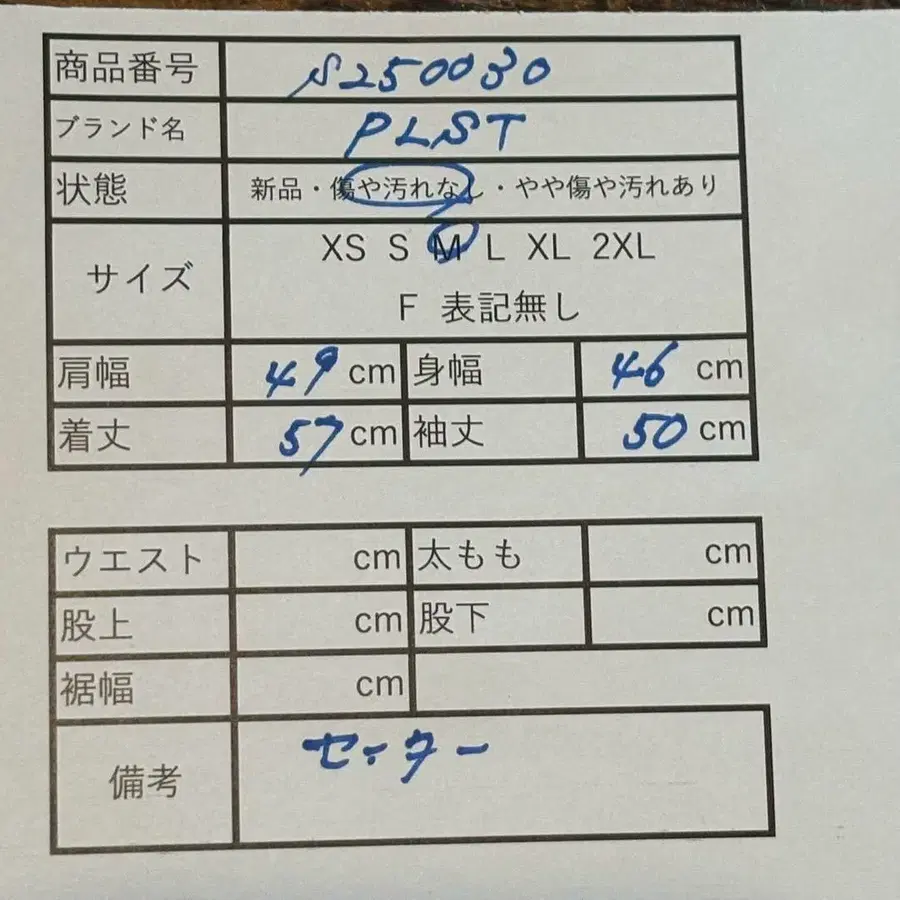 商品番号 S250030
ブランド名 PLST
状態 新品・傷や汚れなし・やや傷や汚れあり
サイズ XS S M L XL 2XL
F 表記無し
肩幅 49 cm 身幅 46 cm
着丈 57 cm 袖丈 50 cm
ウエスト cm 太もも cm
股上 cm 股下 cm
裾幅 cm
備考 セーター